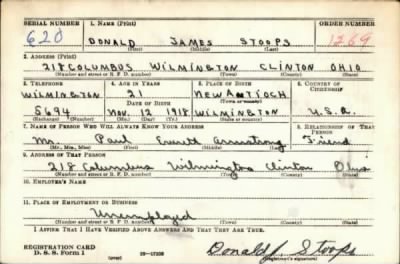 SERIAL NUMBER 1. NAME (Print) ORDER NUMBER
620 DONALD JAMES STOOPS 1269
(First) (Middle) (Last)
2. ADDRESS (Print)
218 COLUMBUS WILMINGTON CLINTON OHIO
(Number and street or R. F. D. number) (Town) (County) (State)
3. TELEPHONE 4. AGE IN YEARS 5. PLACE OF BIRTH 6. COUNTRY OF CITIZENSHIP
WILMINGTON 21 NEW ANTIOCH
DATE OF BIRTH (Town or county)
5694 Nov. 12 1918 WILMINGTON U.S.A.
(Exchange) (Number) (Mo.) (Day) (Yr.) (State or country)
7. NAME OF PERSON WHO WILL ALWAYS KNOW YOUR ADDRESS 8. RELATIONSHIP OF THAT PERSON
Mr. Paul Everett Armstrong Friend
(Mr., Mrs., Miss) (First) (Middle) (Last)
9. ADDRESS OF THAT PERSON
218 Columbus Wilmington Clinton Ohio
(Number and street or R. F. D. number) (Town) (County) (State)
10. EMPLOYER'S NAME
11. PLACE OF EMPLOYMENT OR BUSINESS
Unemployed
(Number and street or R. F. D. number) (Town) (County) (State)
I AFFIRM THAT I HAVE VERIFIED ABOVE ANSWERS AND THAT THEY ARE TRUE.
REGISTRATION CARD
D. S. S. Form 1 Donald J. Stoops
(Registrant's signature)